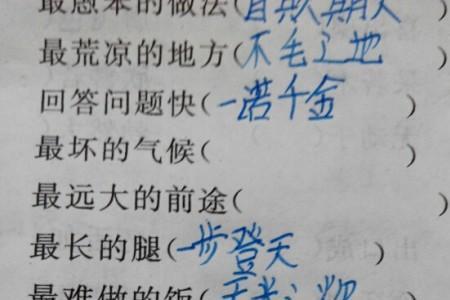 最愚笨的做法(自欺欺人)
最荒凉的地方(不毛之地)
回答问题快(一诺千金)
最坏的气候(      )
最远大的前途(      )
最长的腿(一步登天)
最难做的饭(无米之炊